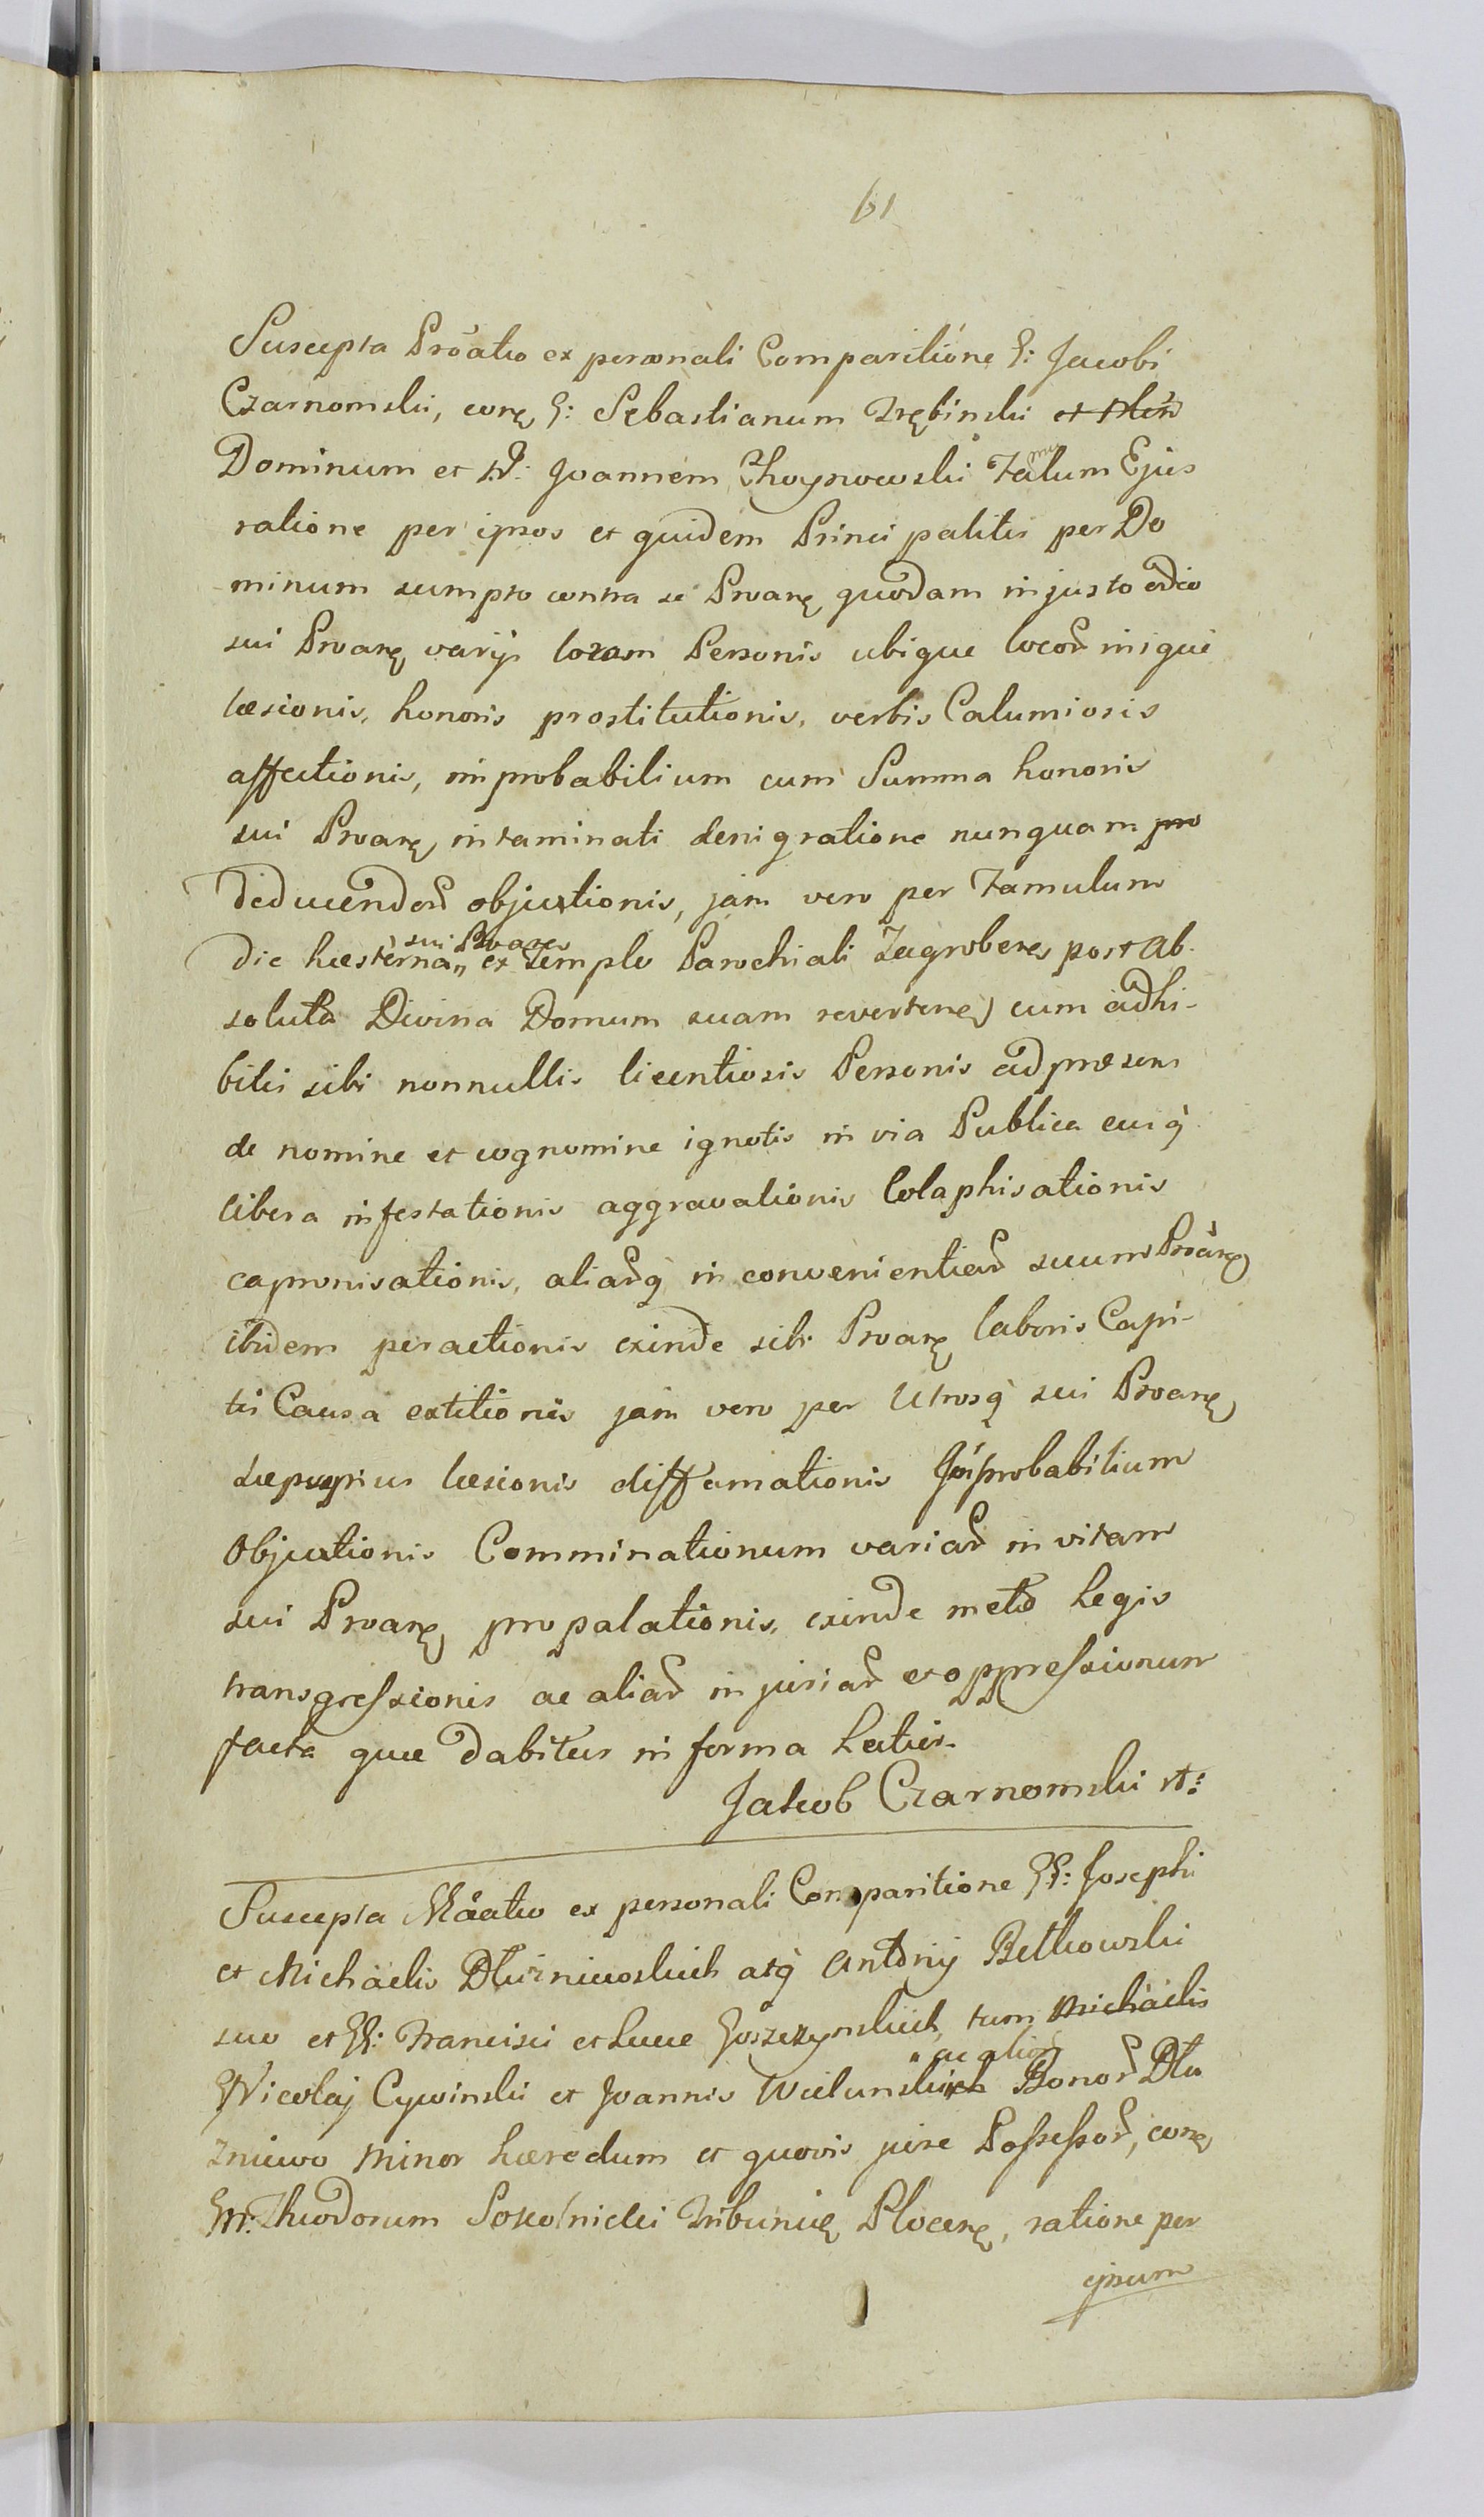 61
Suscepta Proatio ex personali Comparitione G: Jacobi
Czarnomski, conę G: Sebastianum Trębinski et
Dominum et N: Joannem Choynowski Famulum Ejus
ratione per ipsos et quidem Principaliter per Do
minum sumpto contra se Proanę quodam injusto odio
sui Proanę varijs coram Personis ubique locor̃ insigni
læsionis, honoris prostitutionis, verbis Calumiosis
affectionis, improbabilium cum Summa honoris
sui Proanę intaminati denigratione nunquam pro
deducendor̃ objectionis, jam vero per Famulum
die hæsterna sui Proanę ex Templo Parochiali Zagrobenę post ab-
soluta Divina Domum suam revertenę cum adhi-
bitis sibi nonnullis licentiosis Personis ad præsens
de nomine et cognomine ignotis in via Publica cuiq̀
libera infestationis aggravationis Colaphisationis
capronisationis, aliarq̀ inconvenientiar̃ suum Proanę
ibidem peractionis exinde sibi Proanę laboris Capi-
tis Causa extitionis jam vero per Utrosq̀ sui Proanę
sæpuspius læsionis diffamationis Improbabilium
Objectionis Comminationum variar̃ in vitam
sui Proanę propalationis, exinde meto Legis
transgressionis ac aliar̃ injuriar̃ et oppressionum
facta quæ dabitur in forma Latiori
Jakob Czarnomski
Suscepta Máatio ex personali Comparitione GG: Josephi
et Michaelis Dłużniewskich atq̀ Antonij Betkowski
suo et GG: Francisci et Lucæ Goszczynskich, tum Michaelis
Nicolaj Cywinski et Joannis Wielunskich ac alior̃ Bonor̃ Dłu
zniewo Minor hæredum et quovis jure Possessor̃, conę
M: Theodorum Sokolnicki Tribunię Plocenę, ratione per
ipsum